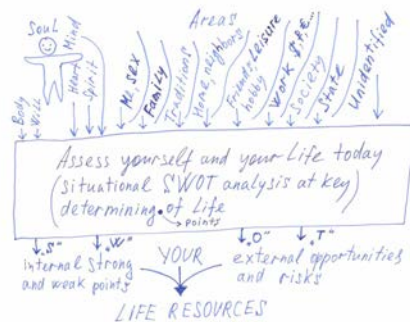 Areas
Soul
Body
Will
Heart
Mind
Spirit
Me, sex
Family
Traditions
Home, neighbors
Friends, Leisure
hobby
Work $,₽,€...
Society
State
Unidentified
Assess yourself and your Life today
(situational SWOT analysis at key
determining • of Life)
points
"S"
"W"
"O"
"T"
internal strong
and weak points
YOUR
external opportunities
and risks
LIFE RESOURCES